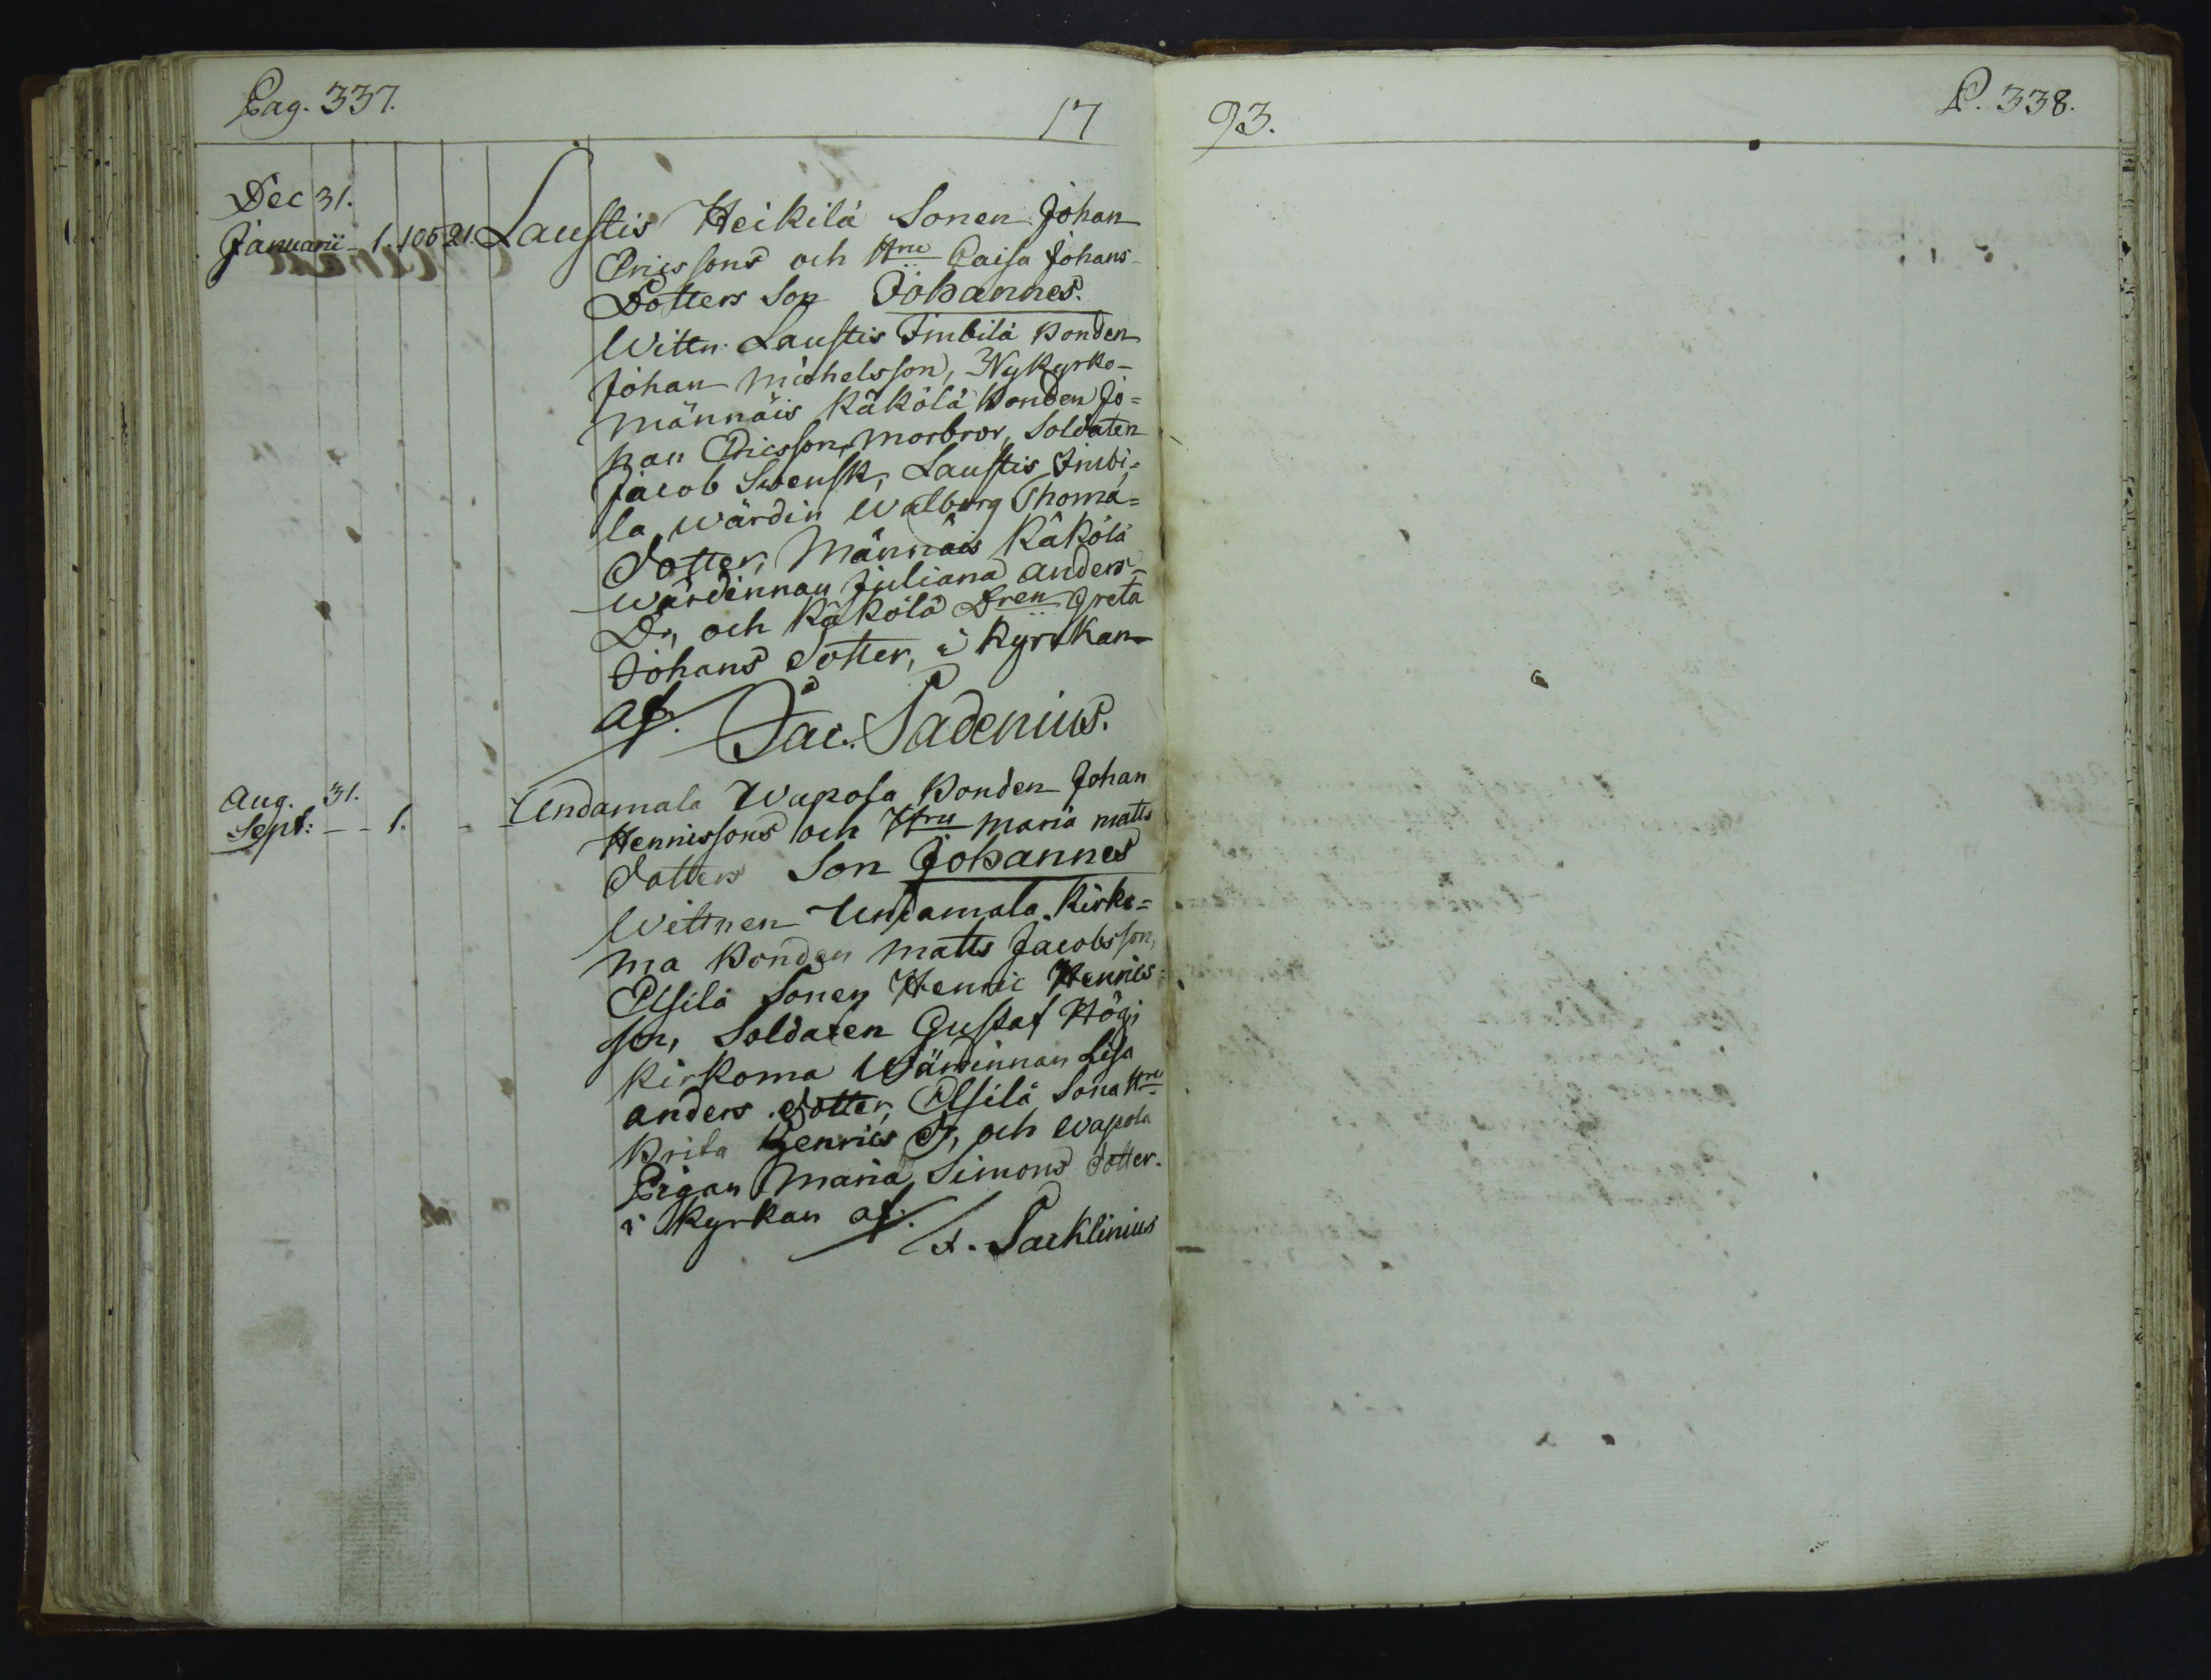 Pag. 337. 17
Dec 31.
Januarii - 1. 105 21. Laustis Heikilä Sonen Johan
Ericssons och Hru Caisa Johans
Dotters Son Johannes.
Wittn. Laustis Simbilä Bonden
Johan Michelsson, Nykyrko-
Männäis Käkölä Bonden Jo=
han Ericsson, morbror, Soldaten
Jacob Swensk, Laustis Simbi=
la, wärdin Walborg Thomä=
Dotter, Männäis Käkölä
wärdinnan Juliana Anders=
Dr, och Käkölä Dren Greta
Johans Dotter, i Kyrkan
af. Jac. Sadenius.
Aug. 31.
Sept: - - 1. - Undamala Wapola Bonden Johan
Henricssons och Hru Maria Matts
Dotters Son Johannes
Wittnen Undamala Kirko=
ma Bonden Matts Jacobsson,
Elsilä Sonen Henric Henrics=
son, Soldaten Gustaf Hög,
Kirkoma Wärdinnan Lisa
Anders Dotter, Elsilä Sona Hru
Brita Henrics D, och Wapola
Pigan Maria Simons Dotter.
i Kyrkan af.
A. Packlinius
93. P. 338.